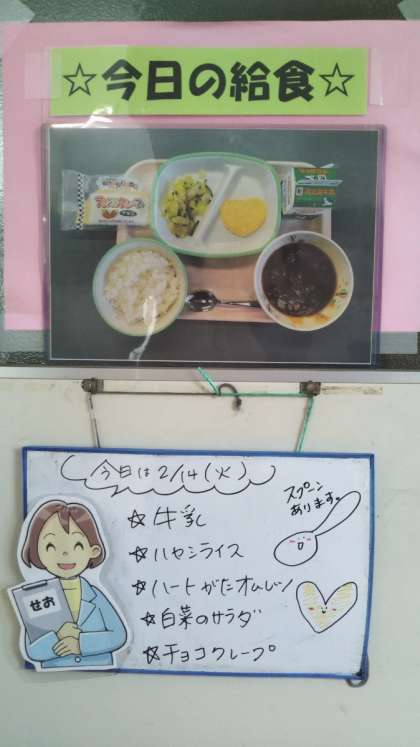 ☆今日の給食☆
今日は2/14(火)
スプーン
あります。
☆牛乳
☆ハヤシライス
☆ハートがたオムレツ
☆白菜のサラダ
☆チョコクレープ
せお